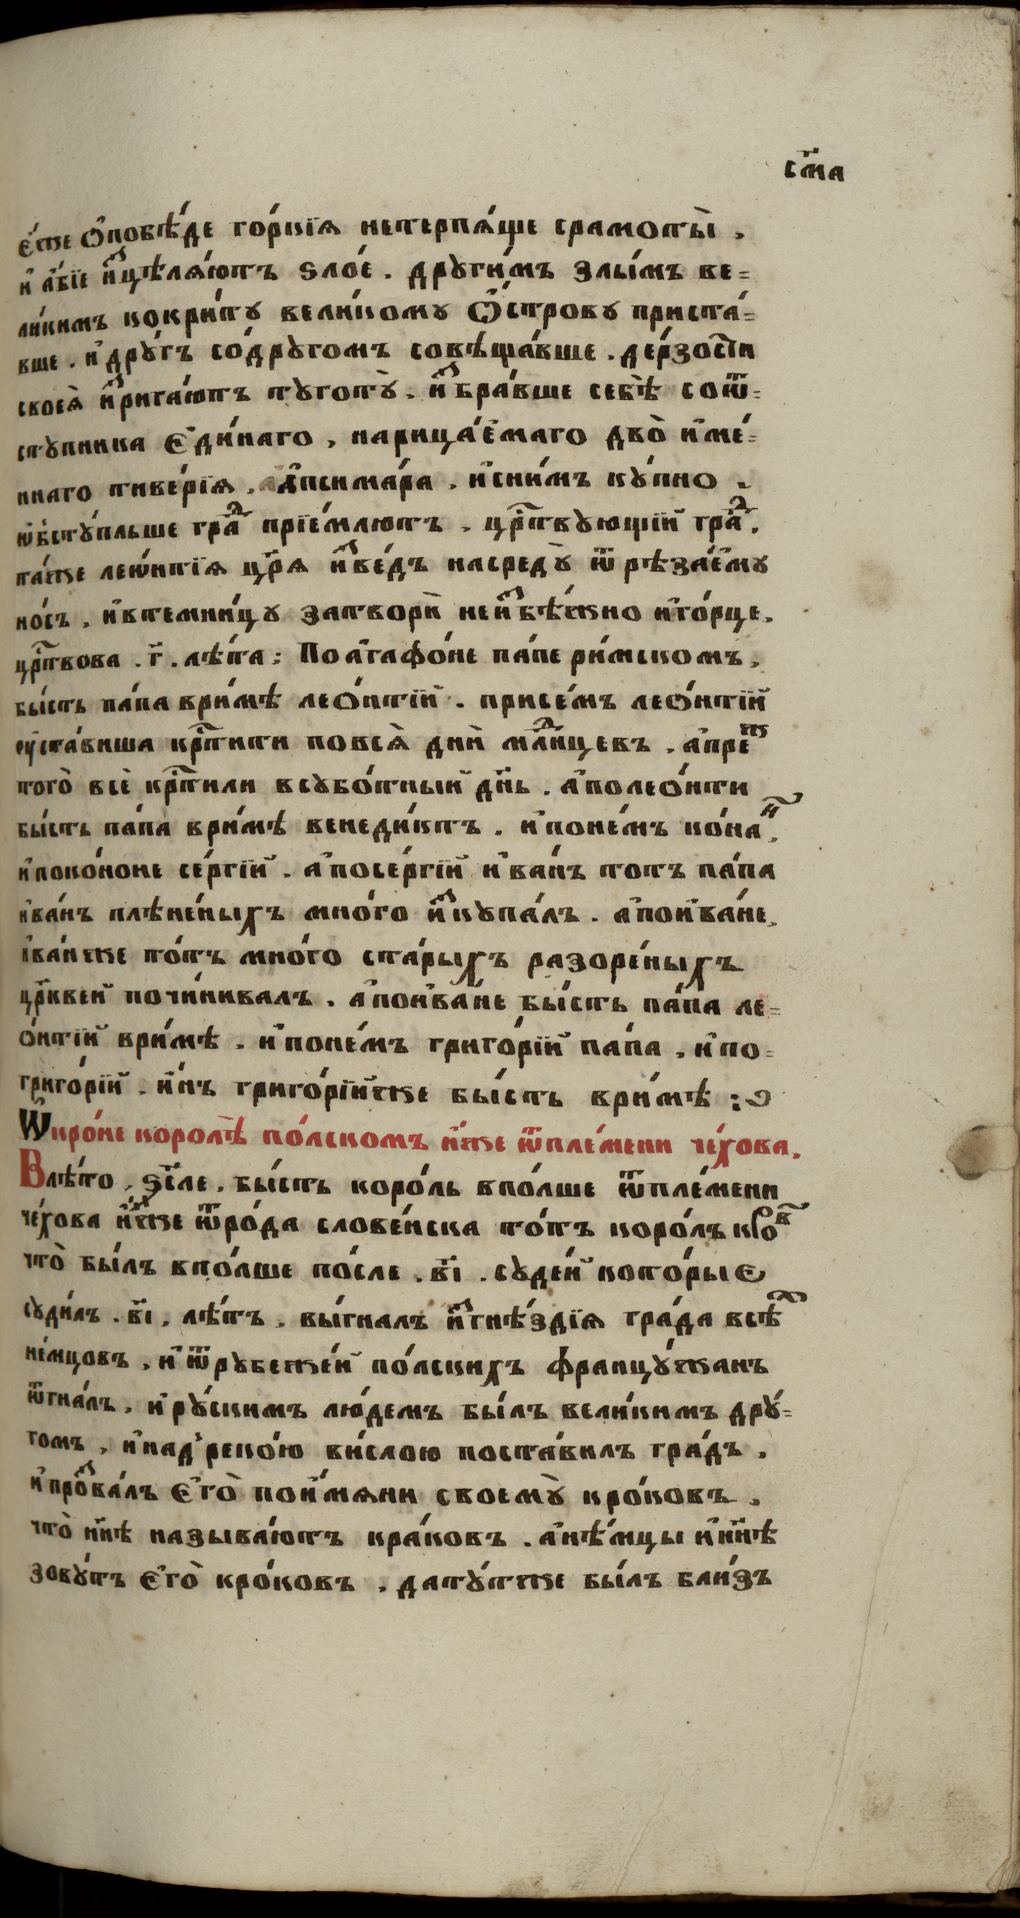 сма
є́же ѻ҆повѣ́де го́ркїѧ нетерпѧ́ще срамоты̀ .
и҆ а҆́бїе и҆сцѣлѧ́ютъ ѕло́е . други́мъ злы́мъ ве=
ли́кимъ кокри́ту вели́кому ѻ҆́строву приста́=
вше . и҆ дру́гъ содру́гомъ совѣща́вше . де́рзости
своеѧ̀ и҆зрига́ютъ туготу̀ . и҆збра́вше себѣ̀ соѿ=
ступника є҆ди́наго , нарица́емаго дво̀ и҆ме́=
ннаго тиве́рїѧ . а҆псима́ра . и҆сни́мъ ку́пно .
ѡ҆бсту́пльше гра́д прїе́млютъ . црⷭ҇твующїй гра́д .
та́же леѡ́нтїѧ цр҃ѧ и҆зве́дъ насреду̀ ѿ рѣза́ему
но́съ , и҆втемни́цу затворѝ неи҆збѣ́жно и҆го́рце .
црⷭ҇твова . г҃ . лѣ́та ; Поа҆гафо́не па́пе ри́мскомъ ,
бы́сть па́па ври́мѣ лео́нтїй . присе́мъ лео́нтїй
оу҆ста́виша крⷭ҇тити повсѧ̀ дни̑ млⷣнцевъ . а҆пре́ж
того̀ всѐ крⷭ҇тили всубо́тный дн҃ь . а҆полео́нти
бы́сть па́па ври́мѣ венеди́ктъ . и҆поне́мъ ко́нан ,
и҆поко́ноне се́ргїй . а҆посе́ргїй и҆ва́нъ тотъ па́па
и҆ва́нъ плѣне́ныхъ мно́го и҆скупа́лъ . а҆пои҆ва́не ,
и҆ва́нже то́тъ мно́го ста́рыхъ разоре́ныхъ
црⷪ҇квей почи́нивалъ . а҆пои҆ва́не бы́сть па́па ле=
о́нтїй ври́мѣ . и҆поне́мъ григо́рїй па́па , и҆по=
григо́рїй . и҆́нъ григо́рїйже бы́сть ври́мѣ :
Ѡ҆кро́не королѣ̀ по́лскомъ и҆́же ѿпле́мени че́хова .
Влѣ́то , ѕс҃ле . бы́сть коро́ль впо́лше ѿпле́мени
че́хова и҆́же ѿро́да слове́нска то́тъ коро́лъ кро́к
что̀ бы́лъ впо́лше по́сле . в҃і . суде́й кото́рыє
суди́лъ . в҃і , лѣ́тъ . вы́гналъ и҆згнѣ́здїѧ гра́да всѣ́х
не́мцовъ , и҆ ѿрубеже́й по́лскихъ францу́жанъ
ѿгна́лъ , и҆ ру́скимъ лю́демъ бы́лъ вели́кимъ дру́=
гомъ , и҆над̾реко́ю ви́слою поста́вилъ гра́дъ .
и҆ прозва́лъ є҆го̀ пои҆́мѧни своему̀ кро́ковъ .
что̀ нн҃ѣ называ́ютъ кра́ковъ . а҆нѣ́мцы и҆нн҃ѣ
зову́тъ є҆го̀ кро́ковъ , дату́тже бы́лъ бли́зъ